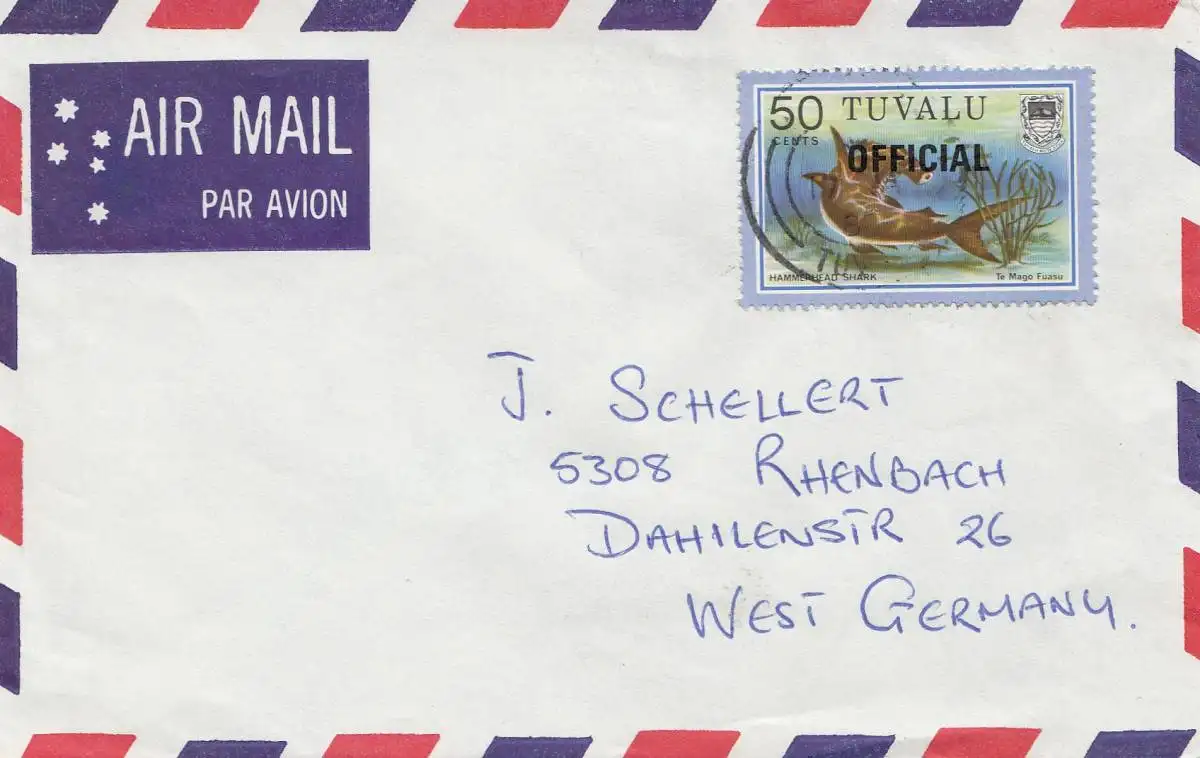 AIR MAIL
PAR AVION
50 TUVALU
CENTS
OFFICIAL
HAMMERHEAD SHARK Te Mago Fuasu
J. SCHELLERT
5308 RHENBACH
DAHILENSTR 26
WEST GERMANY.